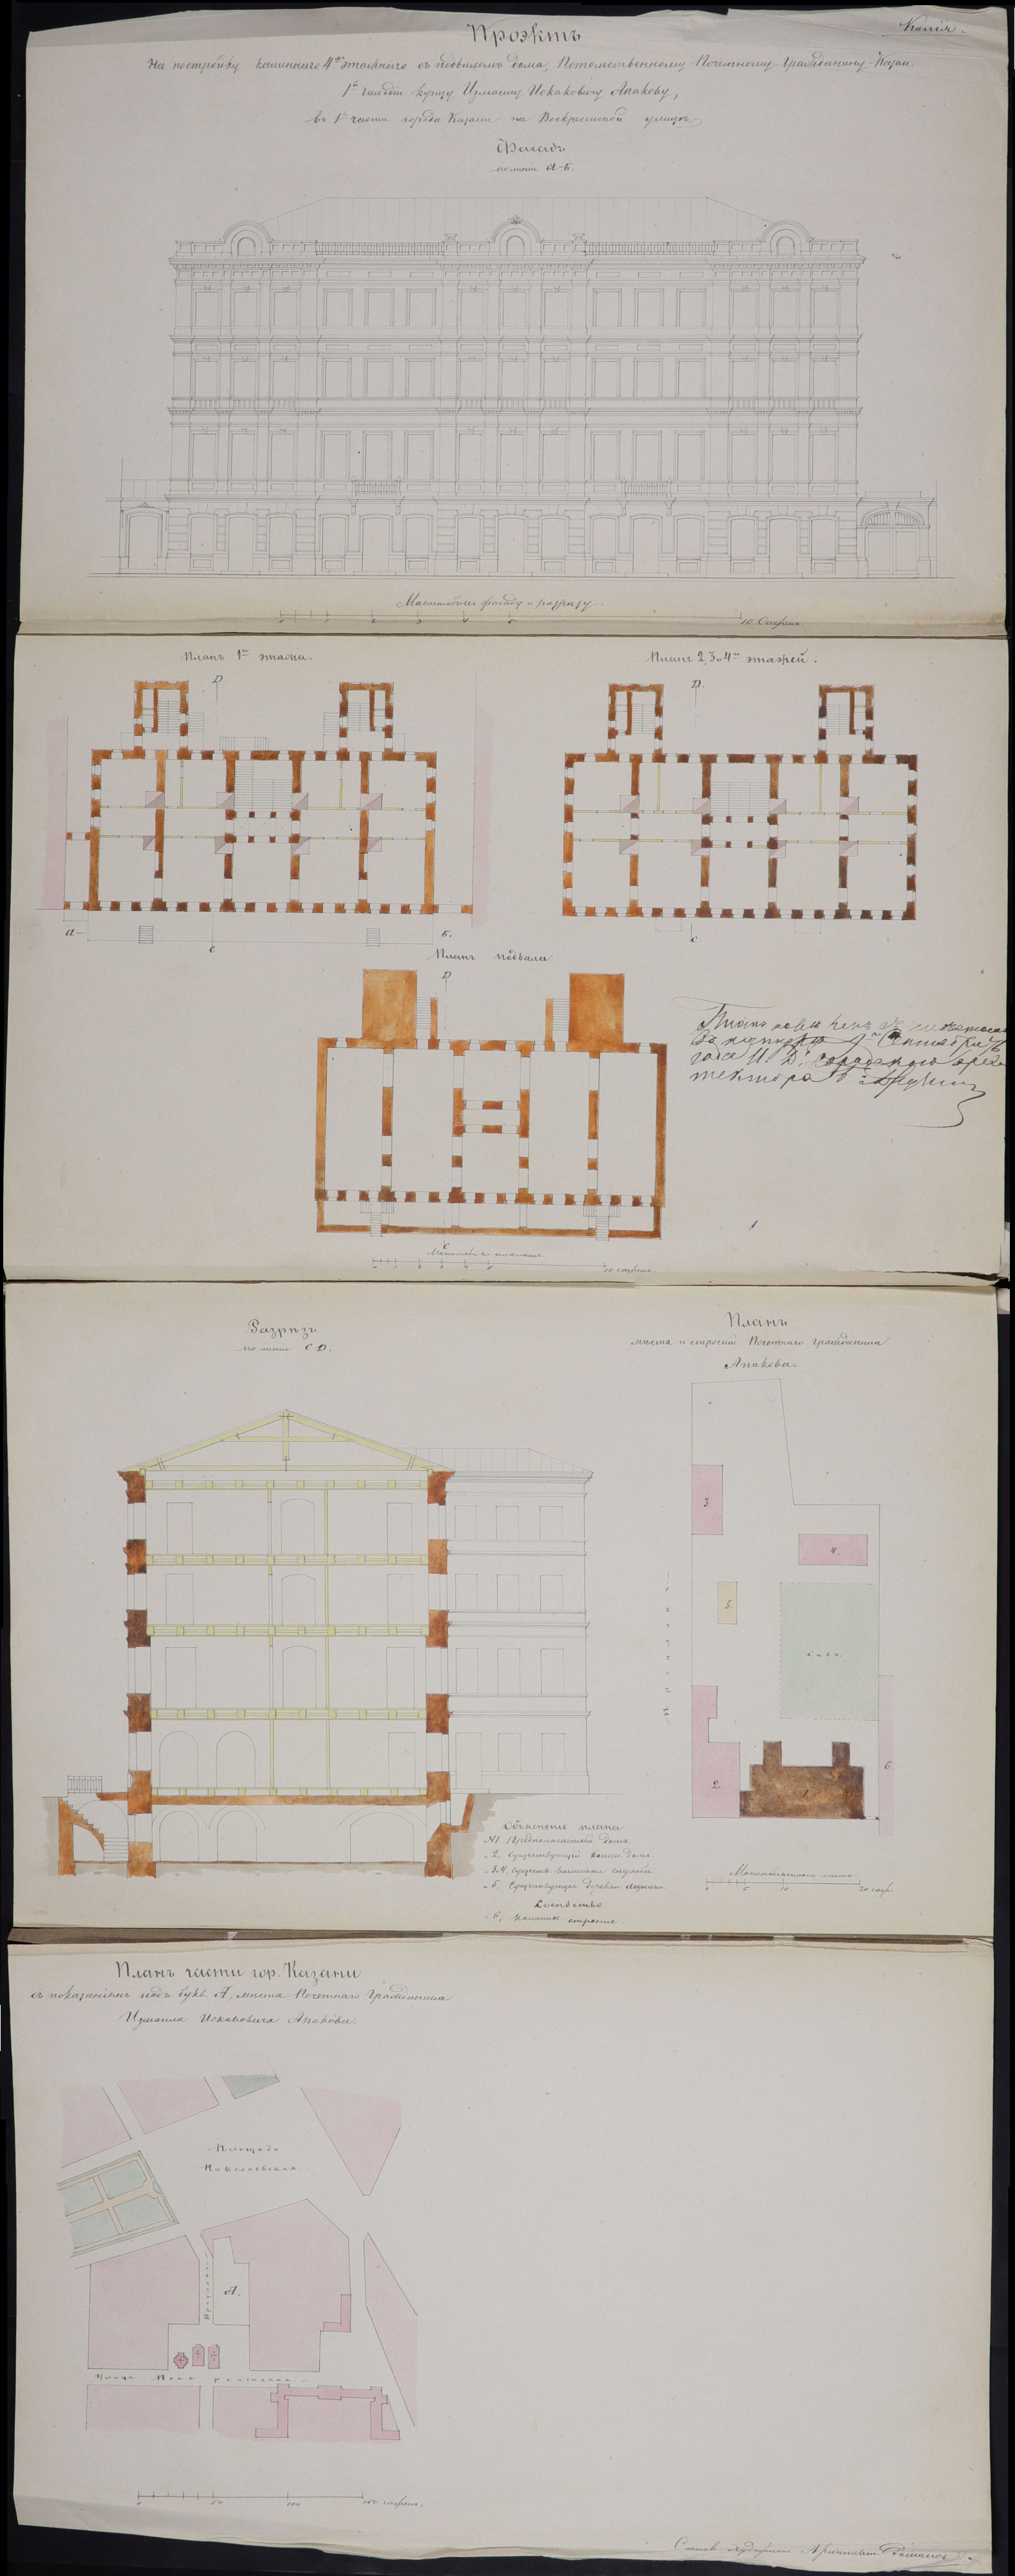 Копія.
Проэктъ
На постройку каменнаго 4хъ этажнаго съ подваломъ дома, Потомственному Почетному Гражданину Казан.
1й гильдіи купцу Измаилу Исхаковичу Апакову,
въ 1й части города Казани на Воскресенской улицѣ.
Фасадъ
по линіи А-Б.
Масштабъ фасаду и разрѣзу.
10 Сажень.
Планъ 1го этажа.
Планъ 2, 3 и 4го этажей.
D.
D.
А
Б.
С
С
Планъ подвала
D
С
Масштабъ планамъ.
0 1 2 3 4 5 10 сажень.
Разрѣзъ
по линіи С D.
Планъ
мѣста и строеній Почетнаго Гражданина
Апакова.
3.
4.
5.
садъ.
2.
1.
6.
Объясненіе плана
№1 Предполагаемый домъ.
2. Существующій камен. домъ.
3.4 Существ. каменныя службы
5. Существующая деревян.
Сосѣдство
6, Каменное строеніе
Масштабъ плана мѣста.
0 5 10 20 саж.
Планъ части гор. Казани
съ показаніемъ подъ букв. А, мѣста Почетнаго Гражданина
Измаила Исхаковича Апакова.
Площадь
Николаевская
Проулокъ
А.
Улица Воскресенская.
0 50 100 150 сажень.